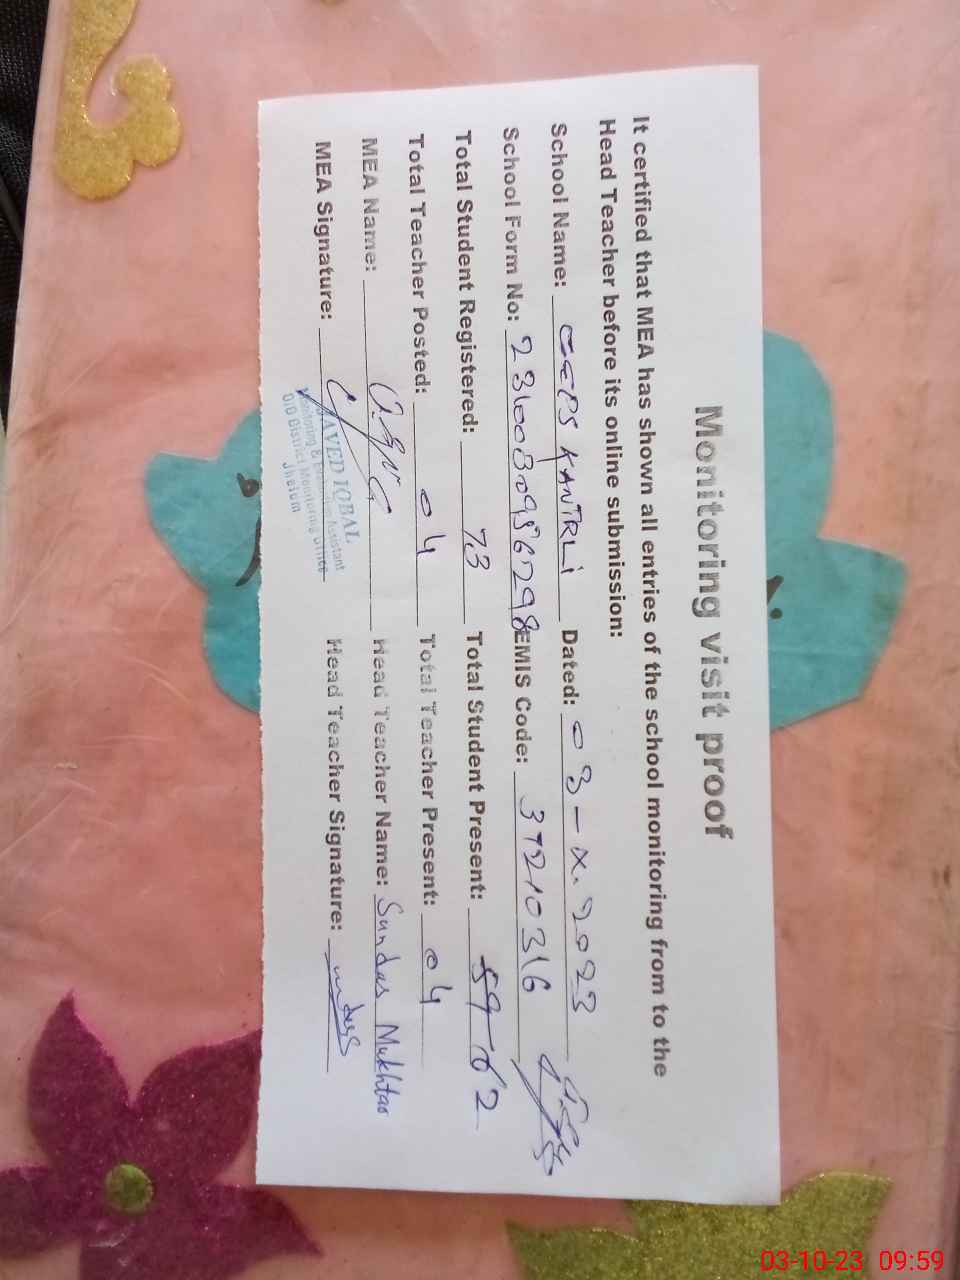 Monitoring visit proof
It certified that MEA has shown all entries of the school monitoring from to the
Head Teacher before its online submission:
School Name: GGPS KANTRLi Dated: 03-X.2023
School Form No: EMIS Code: 37210316
Total Student Registered: 73 Total Student Present: 59 62
Total Teacher Posted: 04 Total Teacher Present: 04
MEA Name: Head Teacher Name: Sundas Mukhtar
MEA Signature: Head Teacher Signature:
JAVED IQBAL
Monitoring & Evaluation Assistant
O/O District Monitoring Office
Jhelum
03-10-23 09:59